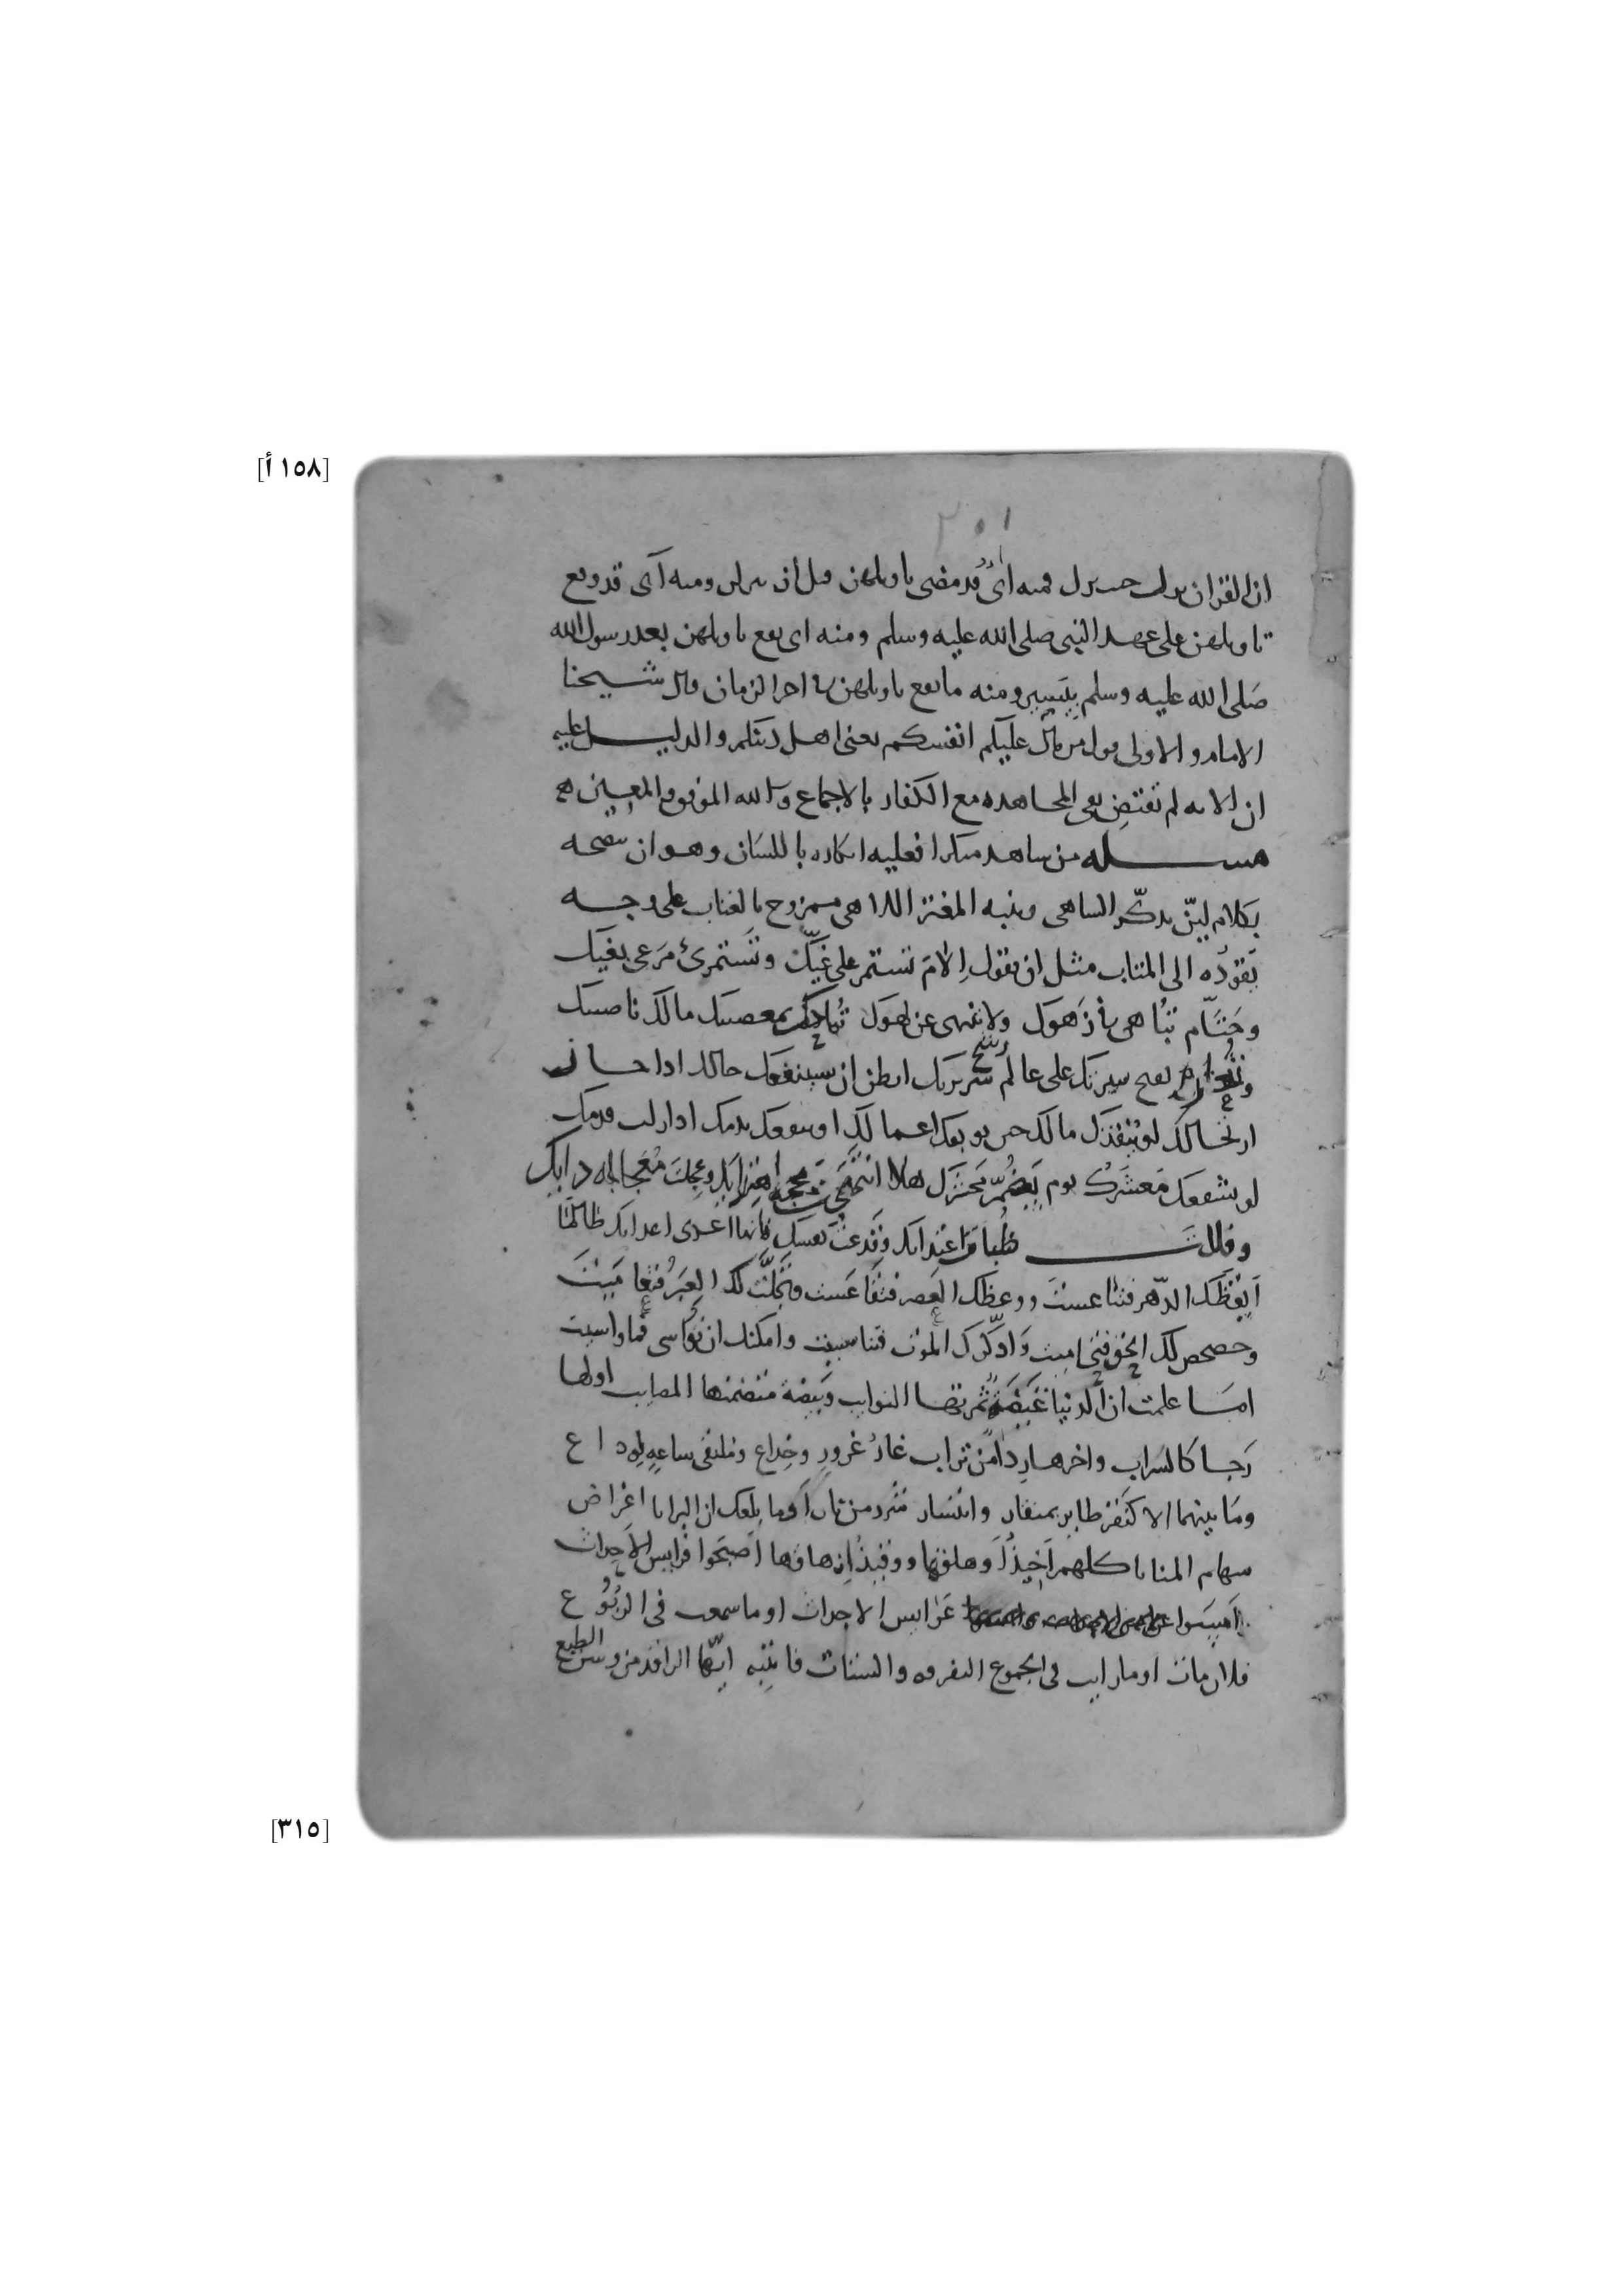 [١٥٨ أ]
٢٠١
ان القران نزل حيث نزل فمنه اى قد مضى تاويلهن قبل ان ينزلن ومنه آى قد وقع
تاويلهن على عهد النبي صلى الله عليه وسلم ومنه اى يقع تاويلهن بعد رسول الله
صلى الله عليه وسلم بيسير ومنه ما يقع تاويلهن في اخر الزمان قال شيخنا
الامام والاولى قول من قال عليكم انفسكم يعنى اهل دينكم والدليل عليه
ان الايه لم تقتض نهى المجاهده مع الكفار بالاجماع والله الموفق والمعين
مسله من شاهد منكرا فعليه انكاره باللسان وهو ان ينصحه
بكلام ليّن يذكّر الساهى وينبه المغتر اللاهى ممزوج بالعتاب على وجه
يقوده الى المتاب مثل ان يقول إلامَ تستمر على غيّك وتستمرئ مرعى بغيك
وحتّام تتناهى في زهوك ولا تنتهى عن لهوك تبارز بمعصيتك مالك ناصيتك
وتجترئ بقبح سيرتك على عالم سريرتك اتظن ان سينفعك حالك اذا حان
ارتحالك او ينقذك مالك حين توبقك اعمالك او ينفعك ندمك اذا زلت قدمك
او يشفعك معشرك يوم يضمّك محشرك هلا انتهجت محجة اهتدائك وعجلت معالجة دائك
وفللت شباة اعتدائك وقدعت نفسك فانها اعدى اعدائك طالما
ايقظك الدّهر فتناعست ووعظك العصر فتقاعست وتجلّت لك العِبَر فتعاميت
وحصحص لك الحق فتماريت واذكرك الموت فتناسيت وامكنك ان تواسى فما واسيت
امَا علمت ان الدنيا ثمرتها النوايب وبيضة تتضمنها المصايب اولها
رَجا كالسَراب واخرها ردا من تراب غار غرورٍ وخِداع وملتقى ساعةٍ لوداع
وما بينهما الا كنقر طاير بمنقار وانتشار شرر من نار اوما بلغك ان البرايا اغراض
سهام المنايا كلهم اصبَحوا فرايس الاحداث
امسَوا عرايس الاجداث اوما سمعت فى الربوع
فلان مات اوما رايت فى الجموع التفرقه والشتات فانتبه ايّها الراقد من وسن الطبع
[٣١٥]